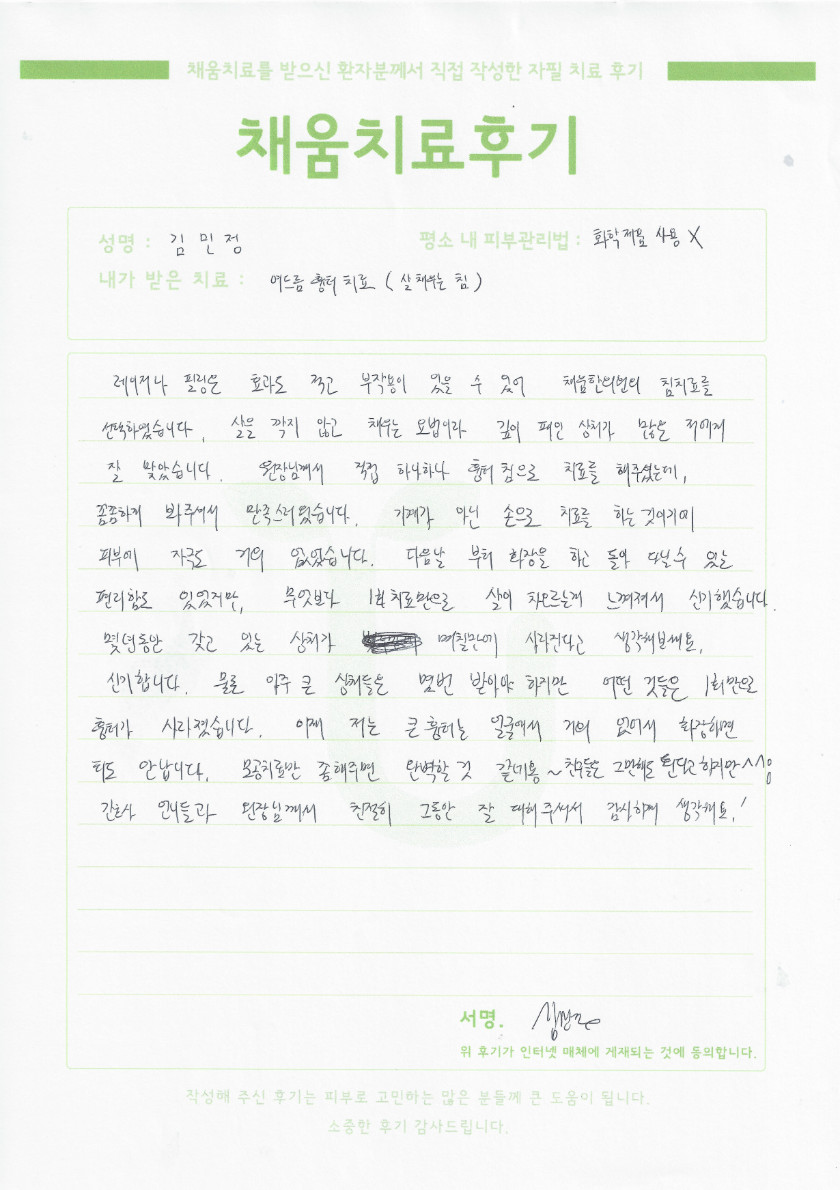 채움치료를 받으신 환자분께서 직접 작성한 자필 치료 후기
채움치료후기
성명 : 김민정 평소 내 피부관리법 : 화학제품 사용 X
내가 받은 치료 : 여드름 흉터 치료 (살 채우는 침)
레이저나 필링은 효과도 적고 부작용이 있을 수 있어 채움한의원의 침치료를
선택하였습니다. 살을 깍지 않고 채우는 요법이라 깊이 패인 상처가 많은 저에게
잘 맞았습니다. 원장님께서 직접 하나하나 흉터침으로 치료를 해주셨는데,
꼼꼼하게 봐주셔서 만족스러웠습니다. 기계가 아닌 손으로 치료를 하는 것이기에
피부에 자극도 거의 없었습니다. 다음날 부터 화장을 하고 돌아 다닐 수 있는
편리함도 있었지만, 무엇보다 1회 치료만으로 살이 차오르는게 느껴져서 신기했습니다.
몇년동안 갖고 있는 상처가 며칠만에 사라진다고 생각해보세요.
신기합니다. 물론 아주 큰 상처들은 몇번 받아야 하지만 어떤 것들은 1회만으로
흉터가 사라졌습니다. 이제 저는 큰 흉터는 얼굴에서 거의 없어서 화장하면
티도 안납니다. 모공치료만 좀 해주면 완벽할 것 같네용~ 친구들은 그만해도 된다고 하지만^^;
간호사 언니들과 원장님께서 친절히 그동안 잘 대해주셔서 감사하게 생각해요!
서명.
위 후기가 인터넷 매체에 게재되는 것에 동의합니다.
작성해 주신 후기는 피부로 고민하는 많은 분들께 큰 도움이 됩니다.
소중한 후기 감사드립니다.